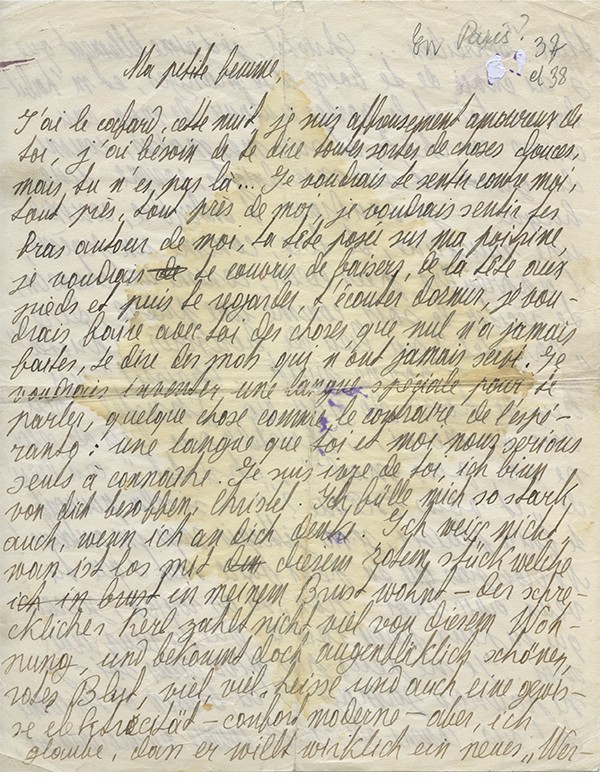 En Paris?
37
et 38
Ma petite femme,
J'ai le cafard, cette nuit, je suis affreusement amoureux de
toi, j'ai besoin de te dire toutes sortes de choses douces,
mais tu n'es pas là... Je voudrais te sentir contre moi,
tout près, tout près de moi, je voudrais sentir tes
bras autour de moi, ta tête posée sur ma poitrine,
je voudrais de te couvris de baisers, de la tête aux
pieds et puis te regarder, t'écouter dormir, je vou-
drais faire avec toi des choses que nul n'a jamais
faites, te dire des mots qui n'ont jamais servi. Je
voudrais inventer une langue spéciale pour te
parler, quelque chose comme le contraire de l'espé-
ranto : une langue que toi et moi nous serions
seuls à connaître. Je suis ivre de toi, ich binn
von dich besoffen, Christel. Ich fülle mich so stark,
auch, wenn ich an dich denke. Ich weiss nicht,
wan ist los mit diesem roten stück welche
ich in brust en meinem Brust wohnt – der schre-
cklicher Kerl zahlt nicht viel von diesem Woh-
nung, und bekommt doch augenblicklich schönen,
rotes Blut, viel, viel heisse und auch eine gewis-
se elektricität – confort moderne – aber, ich
glaube, dass er willt wirklich ein neues „Wer-